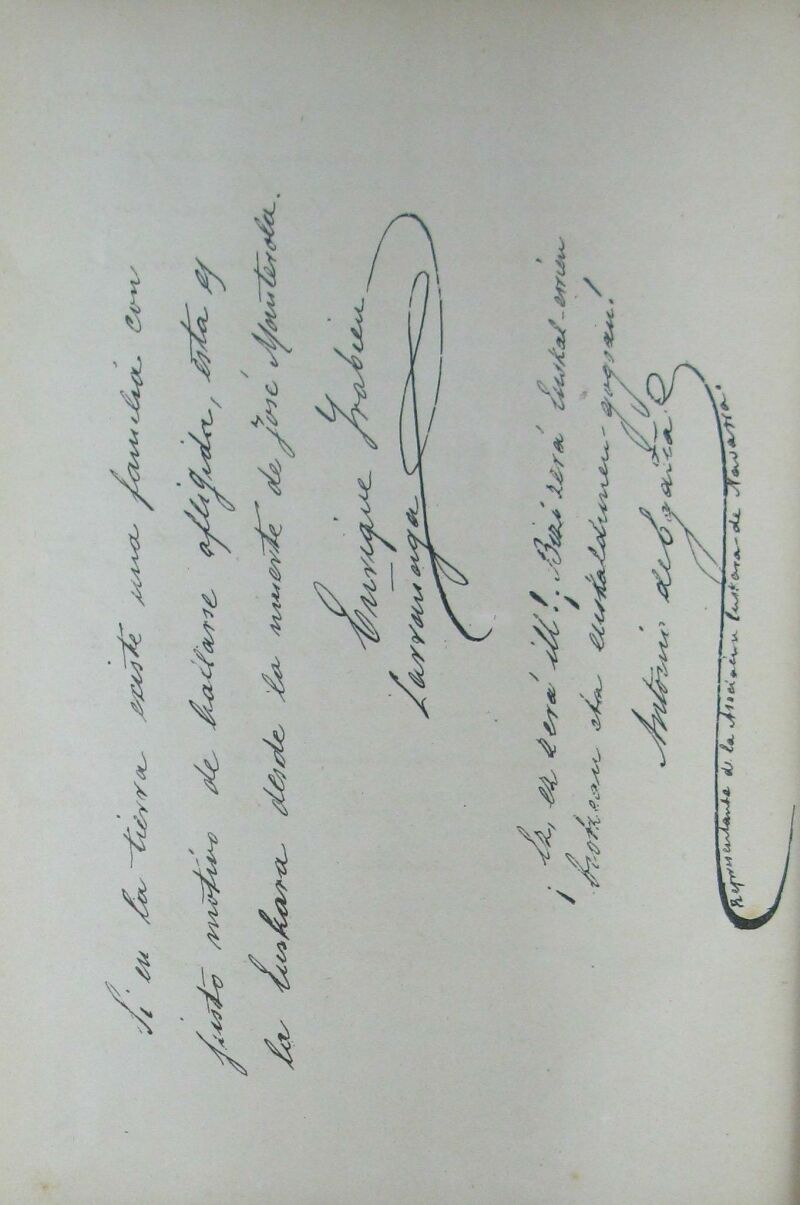 Si en la tierra existe una familia con
justo motivo de hallarse afligida, esta es
la Euskara desde la muerte de José Manterola.
Enrique Irabien
Larrañaga
¡Ez, ez zerá ill! ¡Bizi zerá Euskal-errien
biotzean eta euskaldunen-gogoan!
Antonio de Egaña
Representante de la Asociacion Euskara de Navarra.